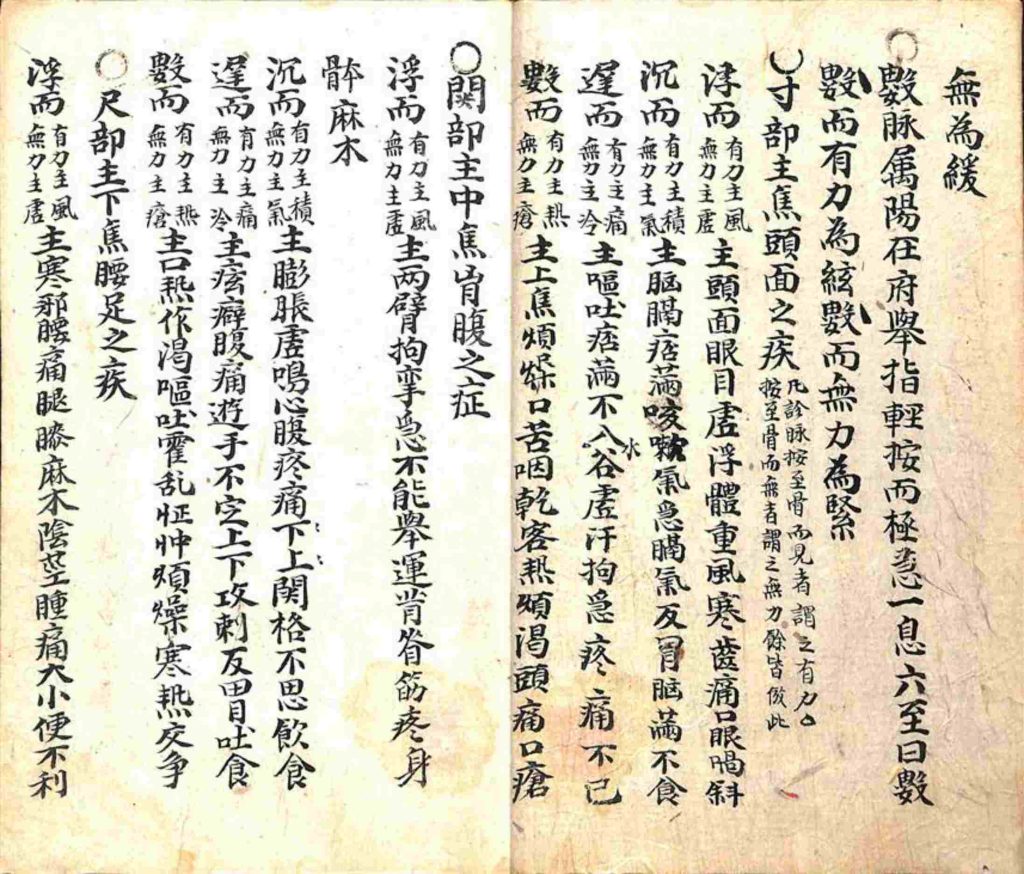 無為緩
數脉属陽在府舉指輕按而極急一息六至曰數
數而有力為絃數而無力為緊
寸部主焦頭面之疾凡診脉按至骨而見者謂之有力按至骨而無者謂之無力餘皆倣此
浮而有力主風無力主虛主頭面眼目虛浮體重風寒齒痛口眼喎斜
沉而有力主積無力主氣主胸膈痞滿咳嗽氣急喝氣反胃胸滿不食
遲而有力主痛無力主冷主嘔吐痞滿不入水谷虛汗拘急疼痛不已
數而有力主熱無力主瘡主上焦煩燥口苦咽乾客熱煩渴頭痛口瘡
關部主中焦胷腹之症
浮而有力主風無力主虛主两臂拘挛急不能舉運背脊筋疼身
躰麻木
沉而有力主積無力主氣主膨脹虛鳴心腹疼痛下上関格不思飲食
遲而有力主痛無力主冷主痃癖腹痛遊手不定上下攻刺反胃吐食
數而有力主熱無力主瘡主口熱作渴嘔吐霍乱怔忡煩燥寒熱交争
尺部主下焦腰足之疾
浮而有力主風無力主虛主寒邪腰痛腿膝麻木陰莖腫痛大小便不利